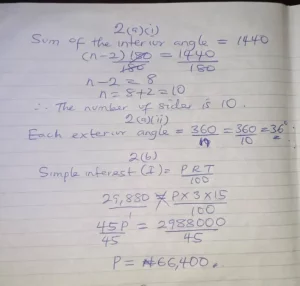 2(a)(i)
Sum of the interior angle = 1440
(n-2) 180/180 = 1440/180
n-2 = 8
n = 8+2 = 10
∴ The number of sides is 10.
2(a)(ii)
Each exterior angle = 360/n = 360/10 = 36°
2(b)
Simple interest (I) = PRT/100
29,880 = P×3×15/100
45P/45 = 2988000/45
P = ₦66,400.